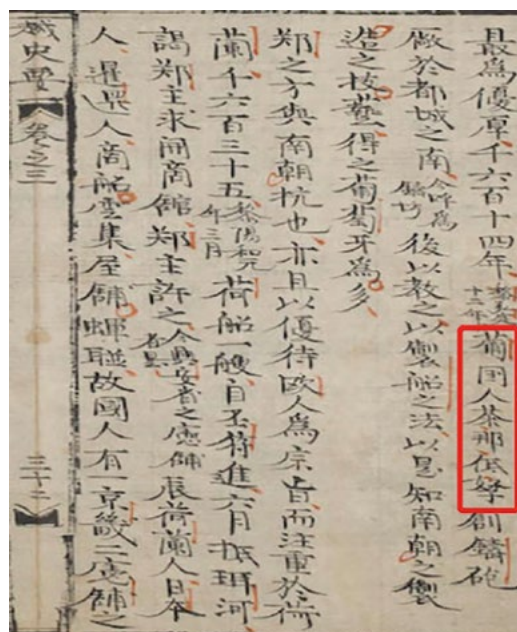 最爲優厚千六百十四年十二年葡国人茶那低拏創鑄砲
廠於都城之南今呼爲鑄坊後以教之以製船之法以是知南朝之製
造之技藝得之葡萄牙爲多
鄭之方與南朝抗也亦且以優待歐人爲宗旨而注重於荷
蘭千六百三十五黎陽和元年三月荷船一艘自丕荷進六月抵珥河
謁鄭主求開商館鄭主許之今興安省之憲舖是辰荷蘭人日本
人暹邏人商船塵集屋舖蟬聯故國人有一京畿二憲舖之
越史要 卷之三 三十二